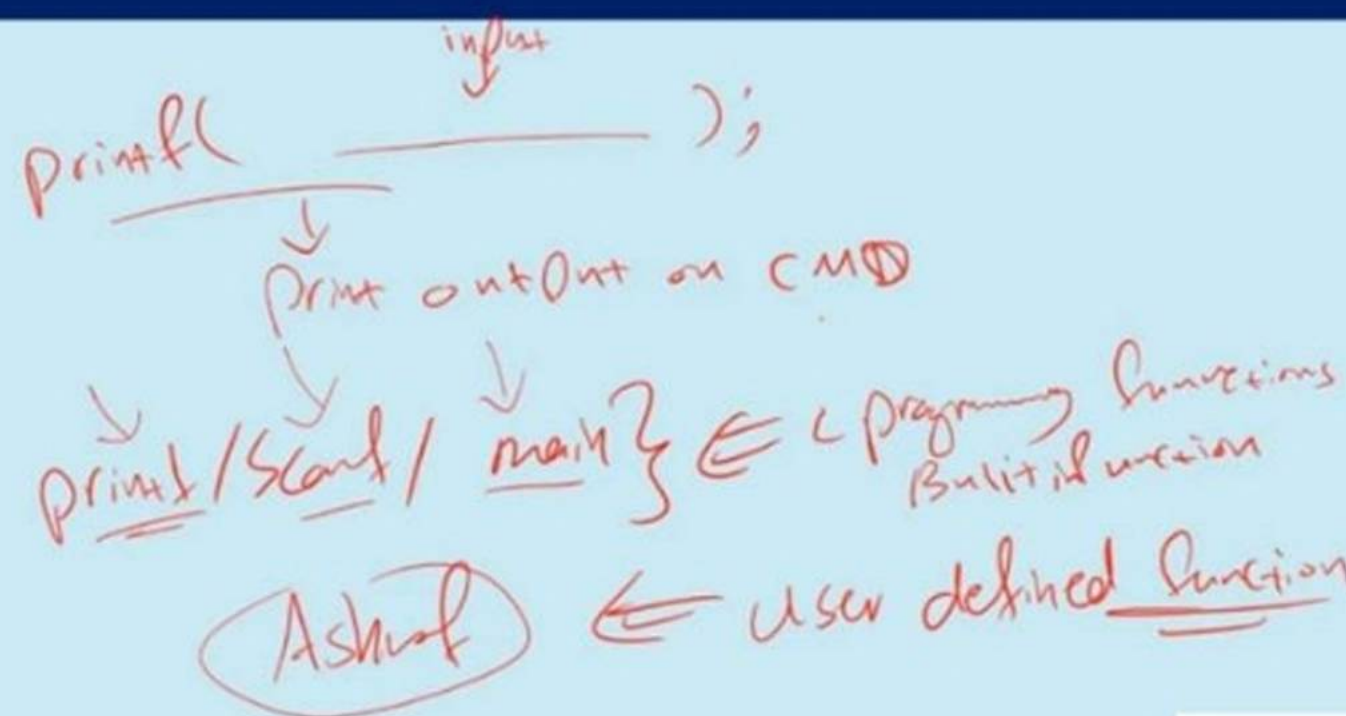 input
printf( );
print output on CMD
printf/scanf/ main} C programming functions
Bulit in function
Ashraf User defined function